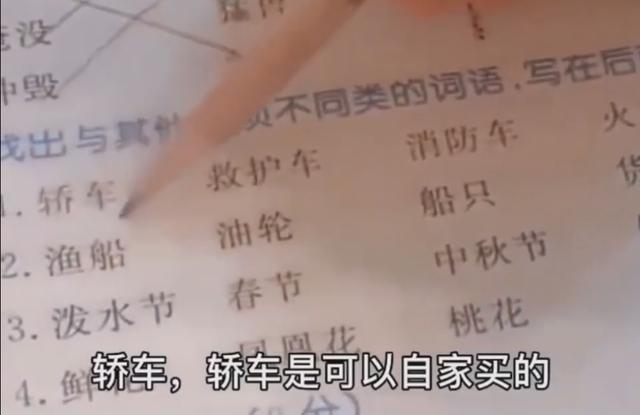 淹没
冲毁
找出与其他 不同类的词语,写在后
1.轿车 救护车 消防车 火
2.渔船 油轮 船只 货
3.泼水节 春节 中秋节
4.鲜花 凤凰花 桃花
轿车，轿车是可以自家买的